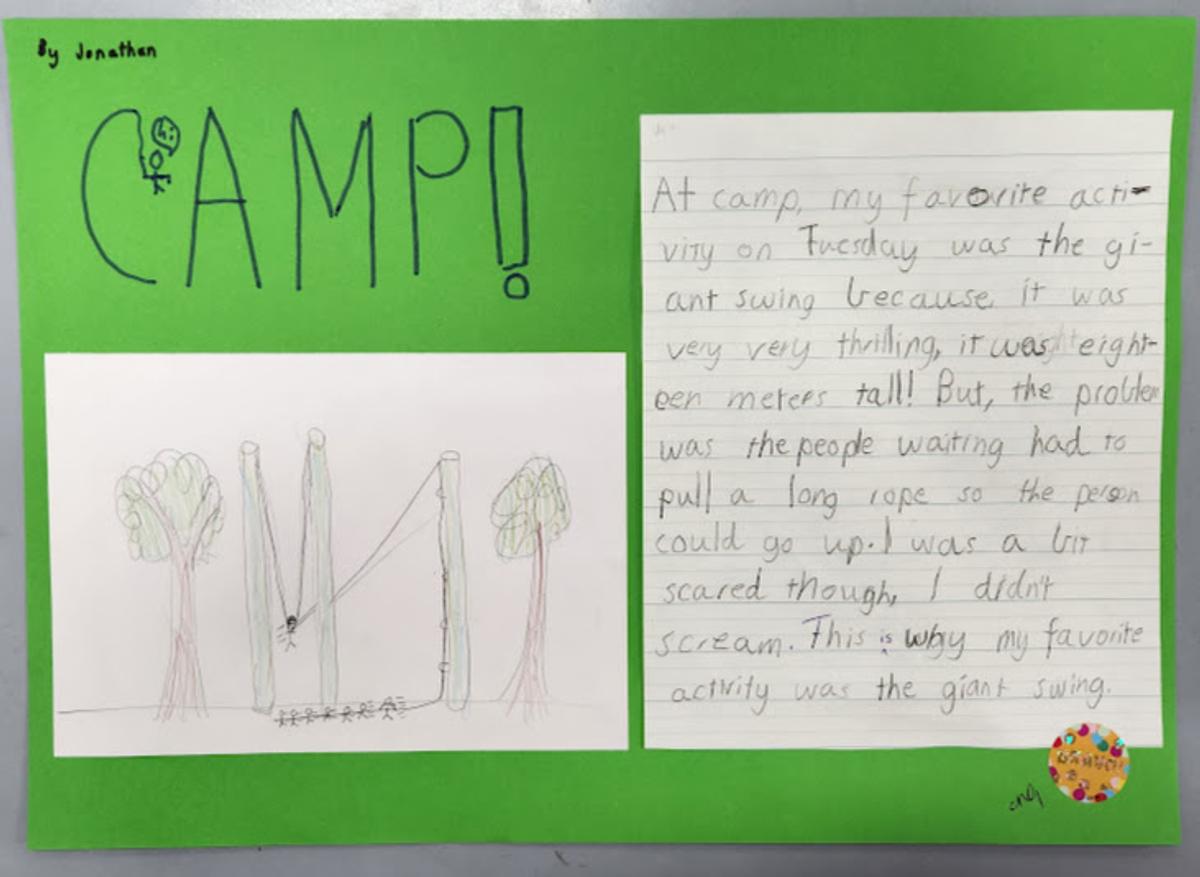 By Jonathan
CAMP!
Hi
At camp, my favorite acti-
vity on Tuesday was the gi-
ant swing because it was
very very thrilling, it was eight-
een meters tall! But, the problem
was the people waiting had to
pull a long rope so the person
could go up. I was a bit
scared though, I didn't
scream. This is why my favorite
activity was the giant swing.